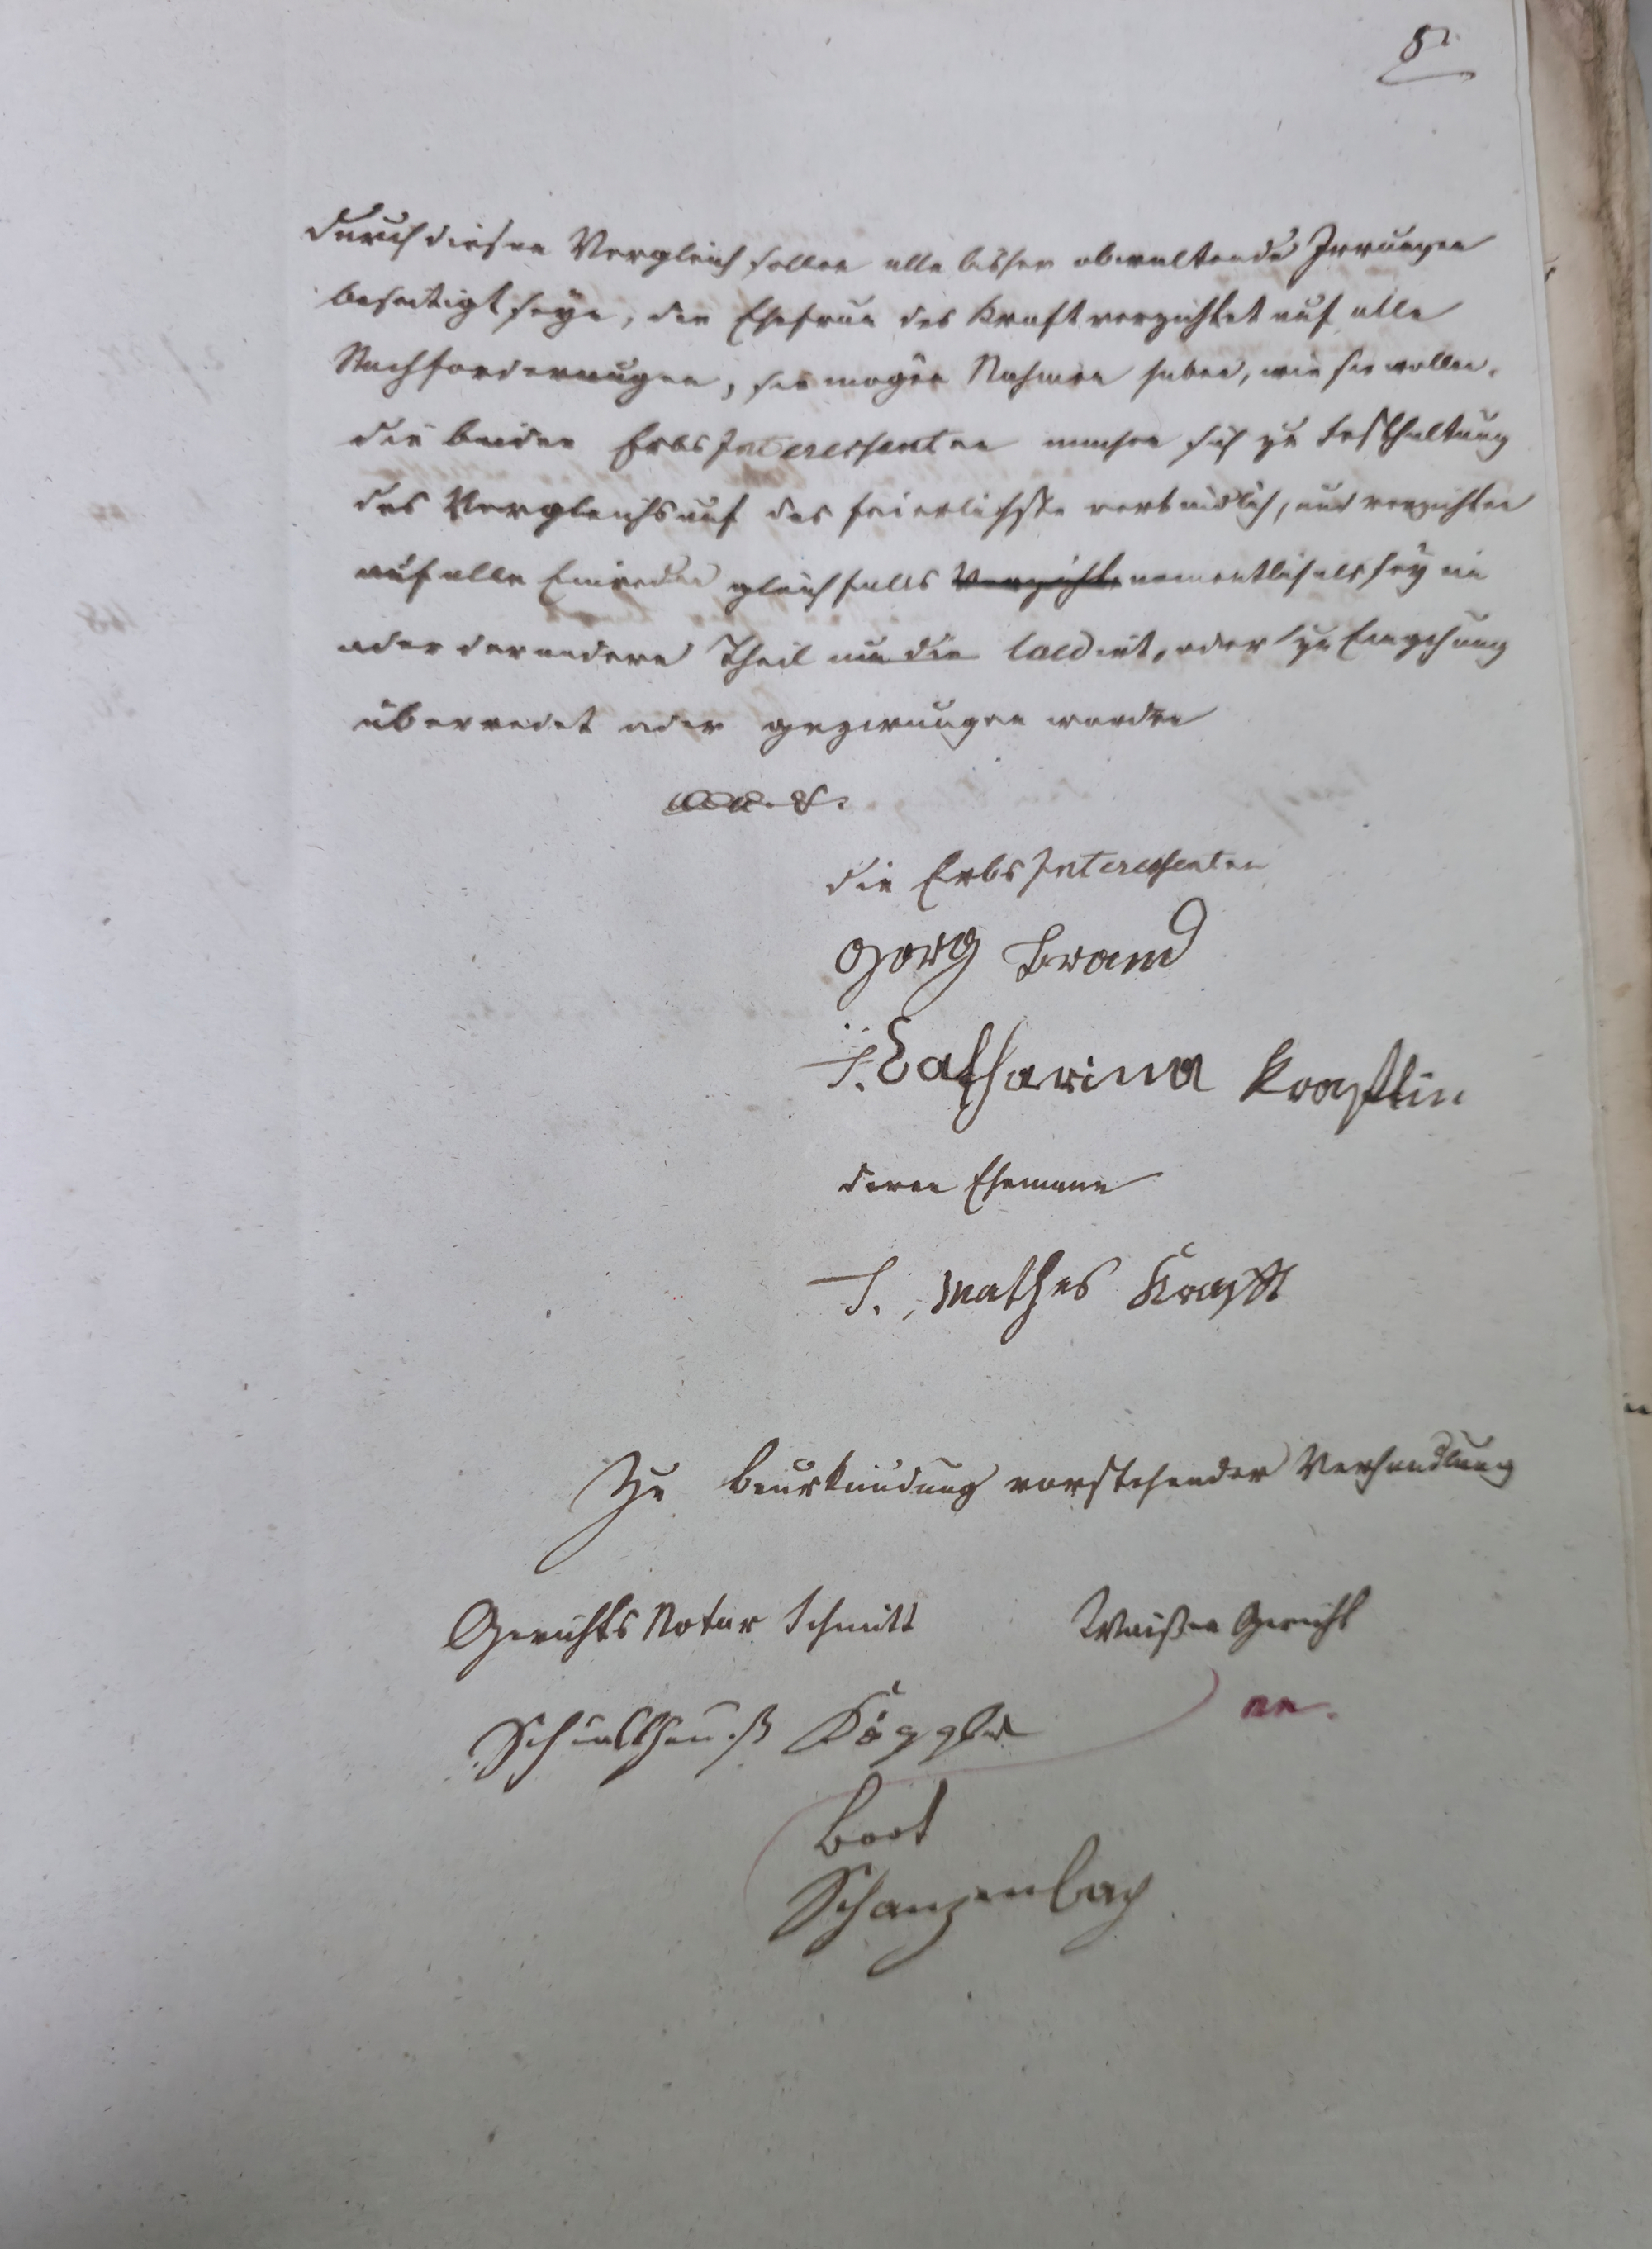 8.
Durch diesen Vergleich sollen alle bisher obwaltende Irrungen
beseitigt seyn, die Ehefrau des Kraft verzichtet auf alle
Nachforderungen, sie mögen Nahmen haben, wie sie wollen.
die beiden Erbs Interessenten machen sich zu Festhaltung
des Vergleichs auf das feierlichste verbindlich, und verzichten
auf alle Einreden gleichfalls Verzicht namentlich als sey ein
oder der andere Theil laedirt, oder zu Eingehung
überredet oder gezwungen worden
die Erbs Interessenten
Gorg Brand
T. Catharina Kraftin
deren Ehemann
T. Mathes Krafft
Zu Beurkundung vorstehender Verhandlung
Gerichts Notar Schmitt Waißen Gericht
Schultheiß Käppler
Bort
Schanzenbach